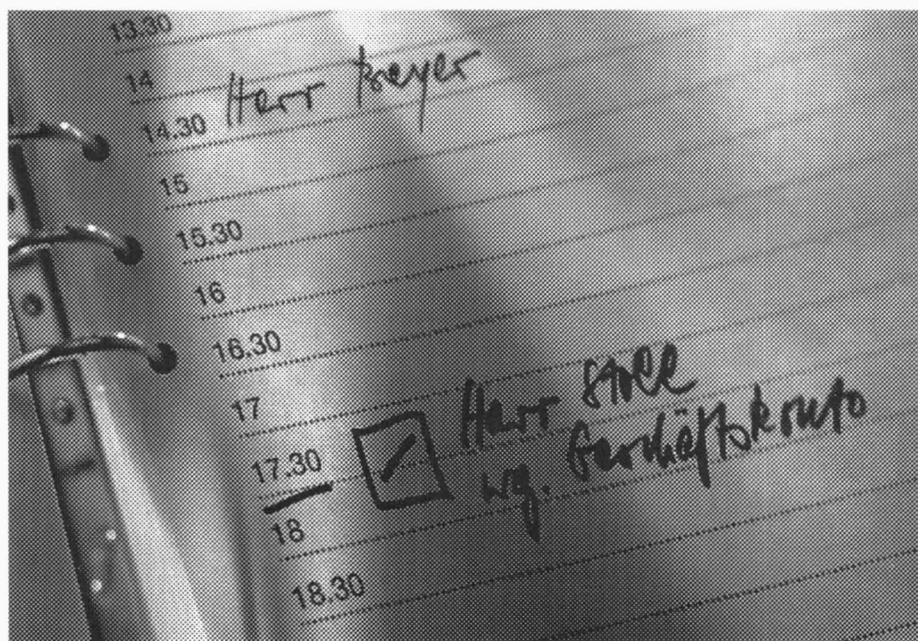 13.30
14
14.30 Herr Beyer
15
15.30
16
16.30
17
Herr Stoll
17.30 wg. Geschäftskonto
18
18.30